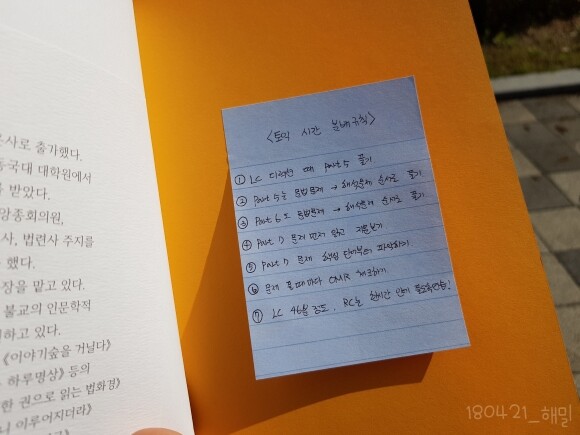 문사로 출가했다.
동국대 대학원에서
를 받았다.
앙종회의원,
사, 법련사 주지를
했다.
장을 맡고 있다.
불교의 인문학적
하고 있다.
《이야기숲을 거닐다》
하루명상》 등의
한 권으로 읽는 법화경》
니 이루어지더라》
<토익 시간 분배 규칙>
① LC 디렉션 때 Part 5 풀기
② Part 5는 문법문제 → 해석문제 순서로 풀기
③ Part 6도 문법문제 → 해석문제 순서로 풀기
④ Part 7 문제 먼저 읽고 지문보기
⑤ Part 7 문제 핵심 단어부터 파악하기
⑥ 문제 풀때마다 OMR 체크하기
⑦ LC 46분 정도, RC는 한시간 안에 풀도록연습!
180421_해밀